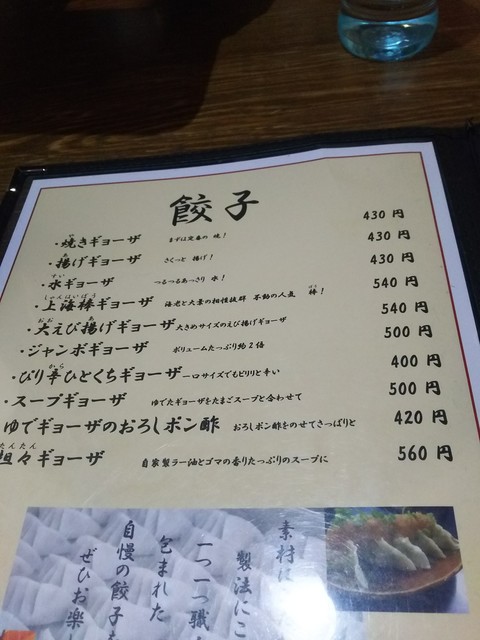 餃子
・焼きギョーザ まずは定番の 焼! 430 円
・揚げギョーザ さくっと 揚げ! 430 円
・水ギョーザ つるつるあっさり 水! 430 円
・上海棒ギョーザ 海老と大葉の相性抜群 不動の人気 棒! 540 円
・大えび揚げギョーザ 大きめサイズのえび揚げギョーザ 540 円
・ジャンボギョーザ ボリュームたっぷり約2倍 500 円
・ぴり辛ひとくちギョーザ 一口サイズでもピリリと辛い 400 円
・スープギョーザ ゆでたギョーザをたまごスープと合わせて 500 円
ゆでギョーザのおろしポン酢 おろしポン酢をのせてさっぱりと 420 円
担々ギョーザ 自家製ラー油とゴマの香りたっぷりのスープに 560 円
素材は
製法にこ
一つ一つ職
包まれた
自慢の餃子を
ぜひお楽